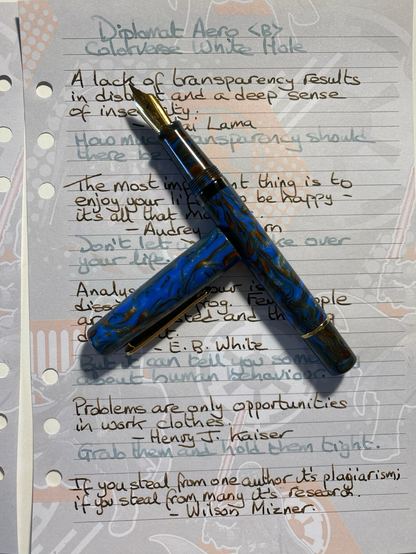 Diplomat Aero <B>
Colorverse White Hole
A lack of transparency results
in dist and a deep sense
of inse ity.
ai Lama
How mu ansparency should
there be
The most imp nt thing is to
enjoy your li o be happy -
it's all that ma
- Audrey n
Don't let ke over
your life.
Analys our is
diss rog. Few ple
ar ted and th
d it.
- E. B. White
But it can tell you som
about human behaviour.
Problems are only opportunities
in work clothes.
- Henry J. Kaiser
Grab them and hold them tight.
If you steal from one author it's plagiarism;
if you steal from many it's research.
- Wilson Mizner.